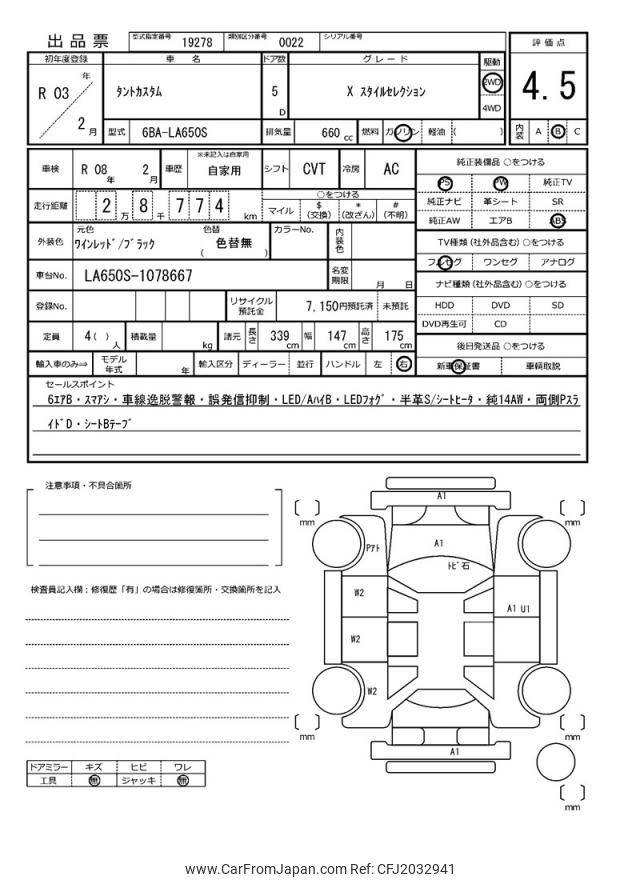 出品票 型式指定番号 19278 類別区分番号 0022 シリアル番号
評価点
4.5
内装 A B C
初年度登録 車名 ドア数 グレード 駆動
R 03 年 2 月
タントカスタム 5 D X スタイルセレクション 2WD 4WD
型式 6BA-LA650S 排気量 660 cc 燃料 ガソリン 軽油 ( )
車検 R 08 年 2 月 車歴 ※未記入は自家用 自家用 シフト CVT 冷房 AC
走行距離 2 万 8 千 7 7 4 km ○をつける
マイル $(交換) *(改ざん) #(不明)
外装色 元色 ワインレッド/ブラック 色替 ( 色替無 ) カラーNo. 内装色
車台No. LA650S-1078667 名変期限 月 日
登録No. リサイクル預託金 7,150円預託済 未預託
定員 4( ) 人 積載量 kg 諸元 長さ 339 cm 幅 147 cm 高さ 175 cm
輸入車のみ⇒ モデル年式 年 輸入区分 ディーラー 並行 ハンドル 左 右
純正装備品 ○をつける
PS PW 純正TV
純正ナビ 革シート SR
純正AW エアB ABS
TV種類 (社外品含む) ○をつける
フルセグ ワンセグ アナログ
ナビ種類 (社外品含む) ○をつける
HDD DVD SD
DVD再生可 CD
後日発送品 ○をつける
新車保証書 車輌取説
セールスポイント
6エアB・スマアシ・車線逸脱警報・誤発信抑制・LED/AハイB・LEDフォグ・半革S/シートヒータ・純14AW・両側Pスラ
イドD・シートBテープ
注意事項・不具合箇所
検査員記入欄：修復歴「有」の場合は修復箇所・交換箇所を記入
A1
mm
mm
Pアト
A1
トビ石
W2
A1 U1
W2
W2
mm
mm
A1
mm
ドアミラー キズ ヒビ ワレ
工具 無 ジャッキ 無
www.CarFromJapan.com Ref: CFJ2032941